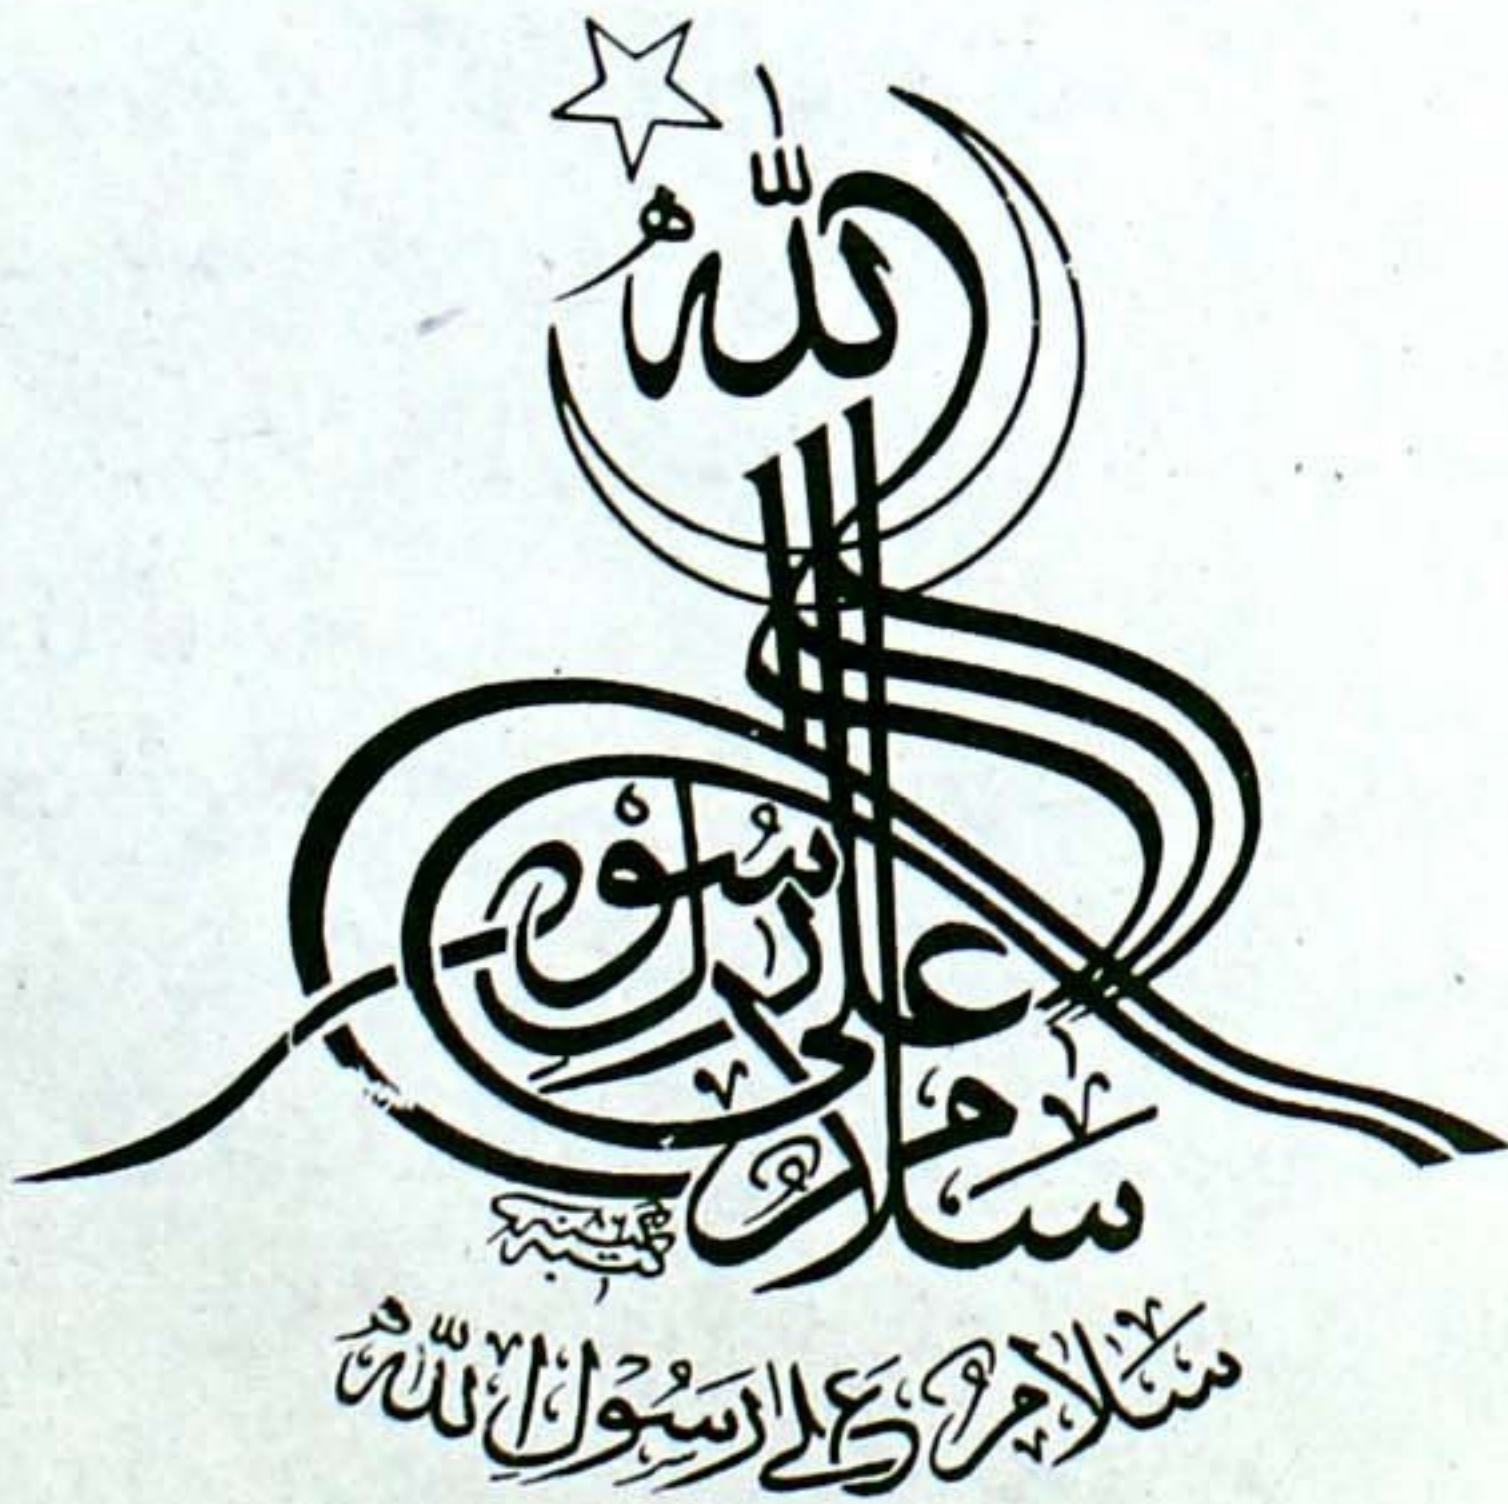 سَلَامٌ عَلَى رَسُوْلِ اللّٰهِ
سَلَامٌ عَلٰی رَسُوْلِ اللّٰهِ